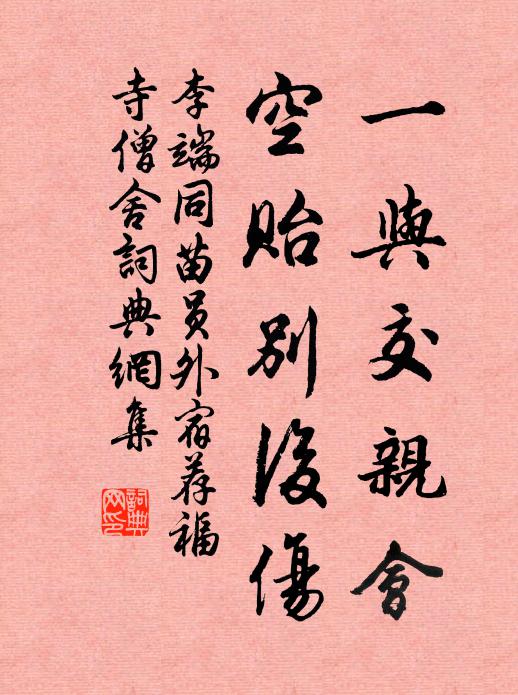 一與交親會
空貽別後傷
李端同苗員外宿荐福
寺僧舍詞典網集
詞典
网印